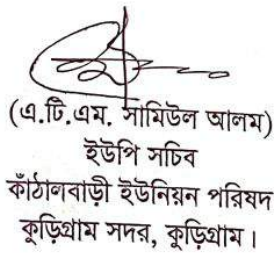 (এ.টি.এম. সামিউল আলম)
ইউপি সচিব
কাঁঠালবাড়ী ইউনিয়ন পরিষদ
কুড়িগ্রাম সদর, কুড়িগ্রাম।